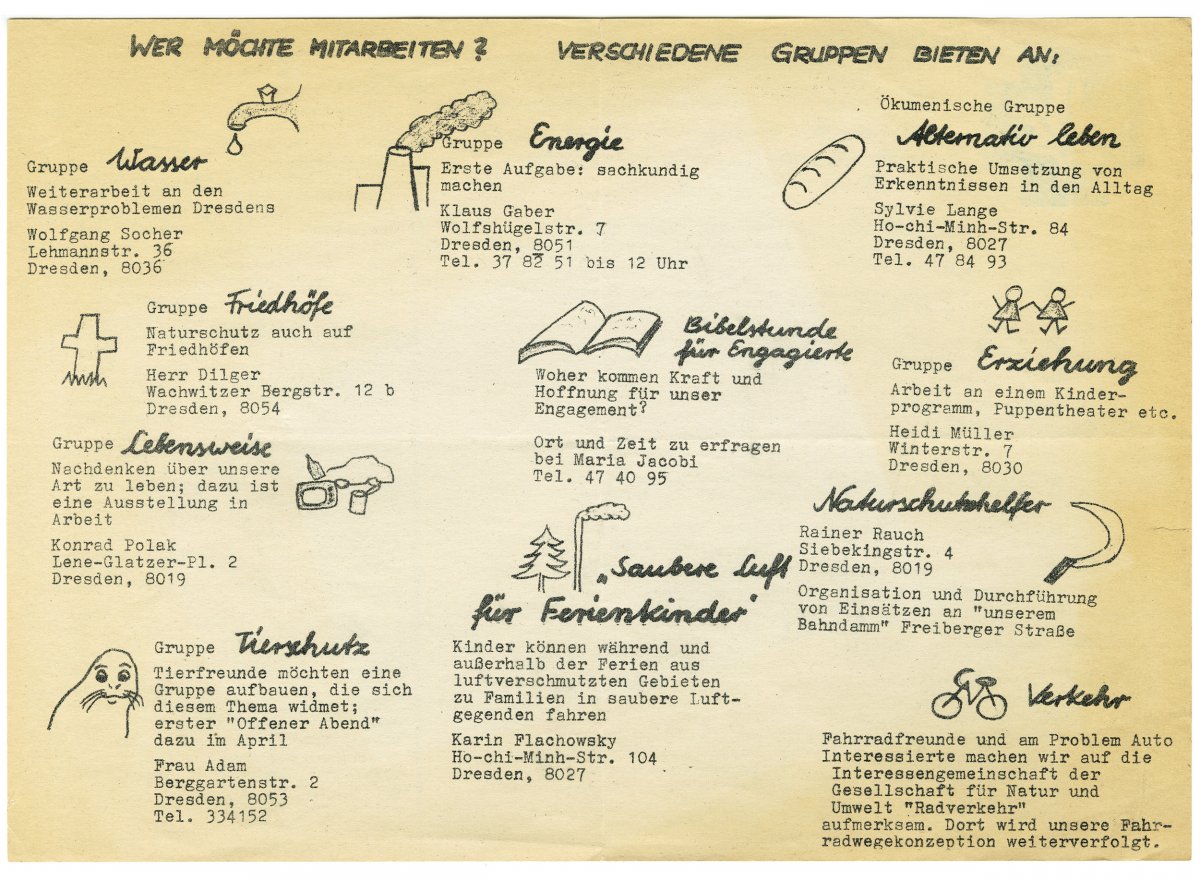 WER MÖCHTE MITARBEITEN? VERSCHIEDENE GRUPPEN BIETEN AN:
Gruppe Wasser
Weiterarbeit an den
Wasserproblemen Dresdens
Wolfgang Socher
Lehmannstr. 36
Dresden, 8036
Gruppe Energie
Erste Aufgabe: sachkundig
machen
Klaus Gaber
Wolfshügelstr. 7
Dresden, 8051
Tel. 37 82 51 bis 12 Uhr
Ökumenische Gruppe
Alternativ leben
Praktische Umsetzung von
Erkenntnissen in den Alltag
Sylvie Lange
Ho-chi-Minh-Str. 84
Dresden, 8027
Tel. 47 84 93
Gruppe Friedhöfe
Naturschutz auch auf
Friedhöfen
Herr Dilger
Wachwitzer Bergstr. 12 b
Dresden, 8054
Bibelstunde
für Engagierte
Woher kommen Kraft und
Hoffnung für unser
Engagement?
Ort und Zeit zu erfragen
bei Maria Jacobi
Tel. 47 40 95
Gruppe Erziehung
Arbeit an einem Kinder-
programm, Puppentheater etc.
Heidi Müller
Winterstr. 7
Dresden, 8030
Gruppe Lebensweise
Nachdenken über unsere
Art zu leben; dazu ist
eine Ausstellung in
Arbeit
Konrad Polak
Lene-Glatzer-Pl. 2
Dresden, 8019
„Saubere Luft
für Ferienkinder"
Kinder können während und
außerhalb der Ferien aus
luftverschmutzten Gebieten
zu Familien in saubere Luft-
gegenden fahren
Karin Flachowsky
Ho-chi-Minh-Str. 104
Dresden, 8027
Naturschutzhelfer
Rainer Rauch
Siebekingstr. 4
Dresden, 8019
Organisation und Durchführung
von Einsätzen an "unserem
Bahndamm" Freiberger Straße
Gruppe Tierschutz
Tierfreunde möchten eine
Gruppe aufbauen, die sich
diesem Thema widmet;
erster "Offener Abend"
dazu im April
Frau Adam
Berggartenstr. 2
Dresden, 8053
Tel. 334152
Verkehr
Fahrradfreunde und am Problem Auto
Interessierte machen wir auf die
Interessengemeinschaft der
Gesellschaft für Natur und
Umwelt "Radverkehr"
aufmerksam. Dort wird unsere Fahr-
radwegekonzeption weiterverfolgt.